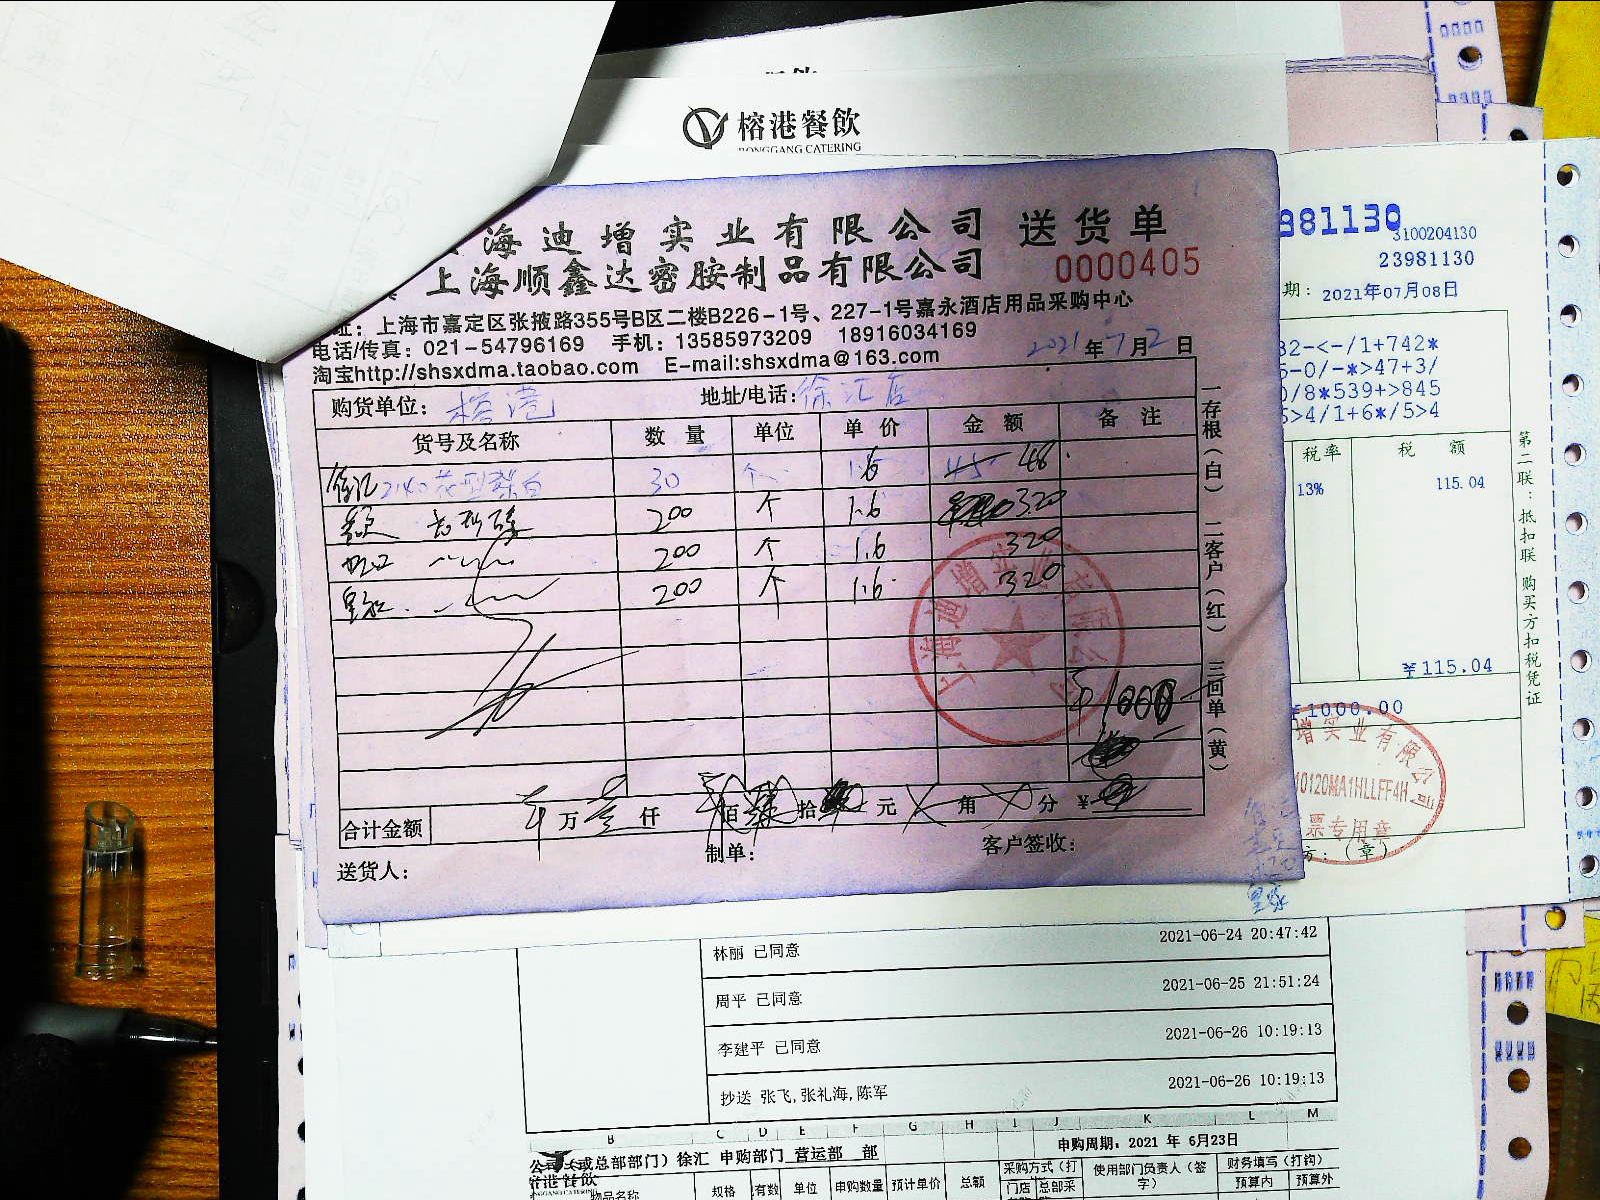 榕港餐飲
RONGGANG CATERING
海迪增实业有限公司 送货单
上海顺鑫达密胺制品有限公司 0000405
址：上海市嘉定区张掖路355号B区二楼B226-1号、227-1号嘉永酒店用品采购中心
电话/传真：021-54796169 手机：13585973209 18916034169
淘宝http://shsxdma.taobao.com E-mail:shsxdma@163.com 2021年7月2日
购货单位：榕港 地址/电话：徐汇店
货号及名称 数量 单位 单价 金额 备注
徐汇 30 个 1.6 48
200 个 1.6 320
200 个 1.6 320
200 个 1.6 320
1000
合计金额 万 仟 佰 拾 元 角 分 ¥
送货人： 制单： 客户签收：
一存根（白） 二客户（红） 三回单（黄）
上海迪增实业有限公司
881130
3100204130
23981130
期：2021年07月08日
82-<-/1+742*
5-0/-*>47+3/
0/8*539+>845
5>4/1+6*/5>4
税率 税额
13% 115.04
¥115.04
¥1000.00
第二联：抵扣联 购买方扣税凭证
增实业有限公司
10120MA1HLLFF4H
票专用章
方：（章）
林丽 已同意 2021-06-24 20:47:42
周平 已同意 2021-06-25 21:51:24
李建平 已同意 2021-06-26 10:19:13
抄送 张飞,张礼海,陈军 2021-06-26 10:19:13
B C D E F G H I J K L M
申购周期：2021 年 6月23日
公司（或总部部门）徐汇 申购部门 营运部 部
榕港餐飲
物品名称 规格 有数 单位 申购数量 预计单价 总额 采购方式（打 使用部门负责人（签字） 财务填写（打钩）
门店 总部采 预算内 预算外